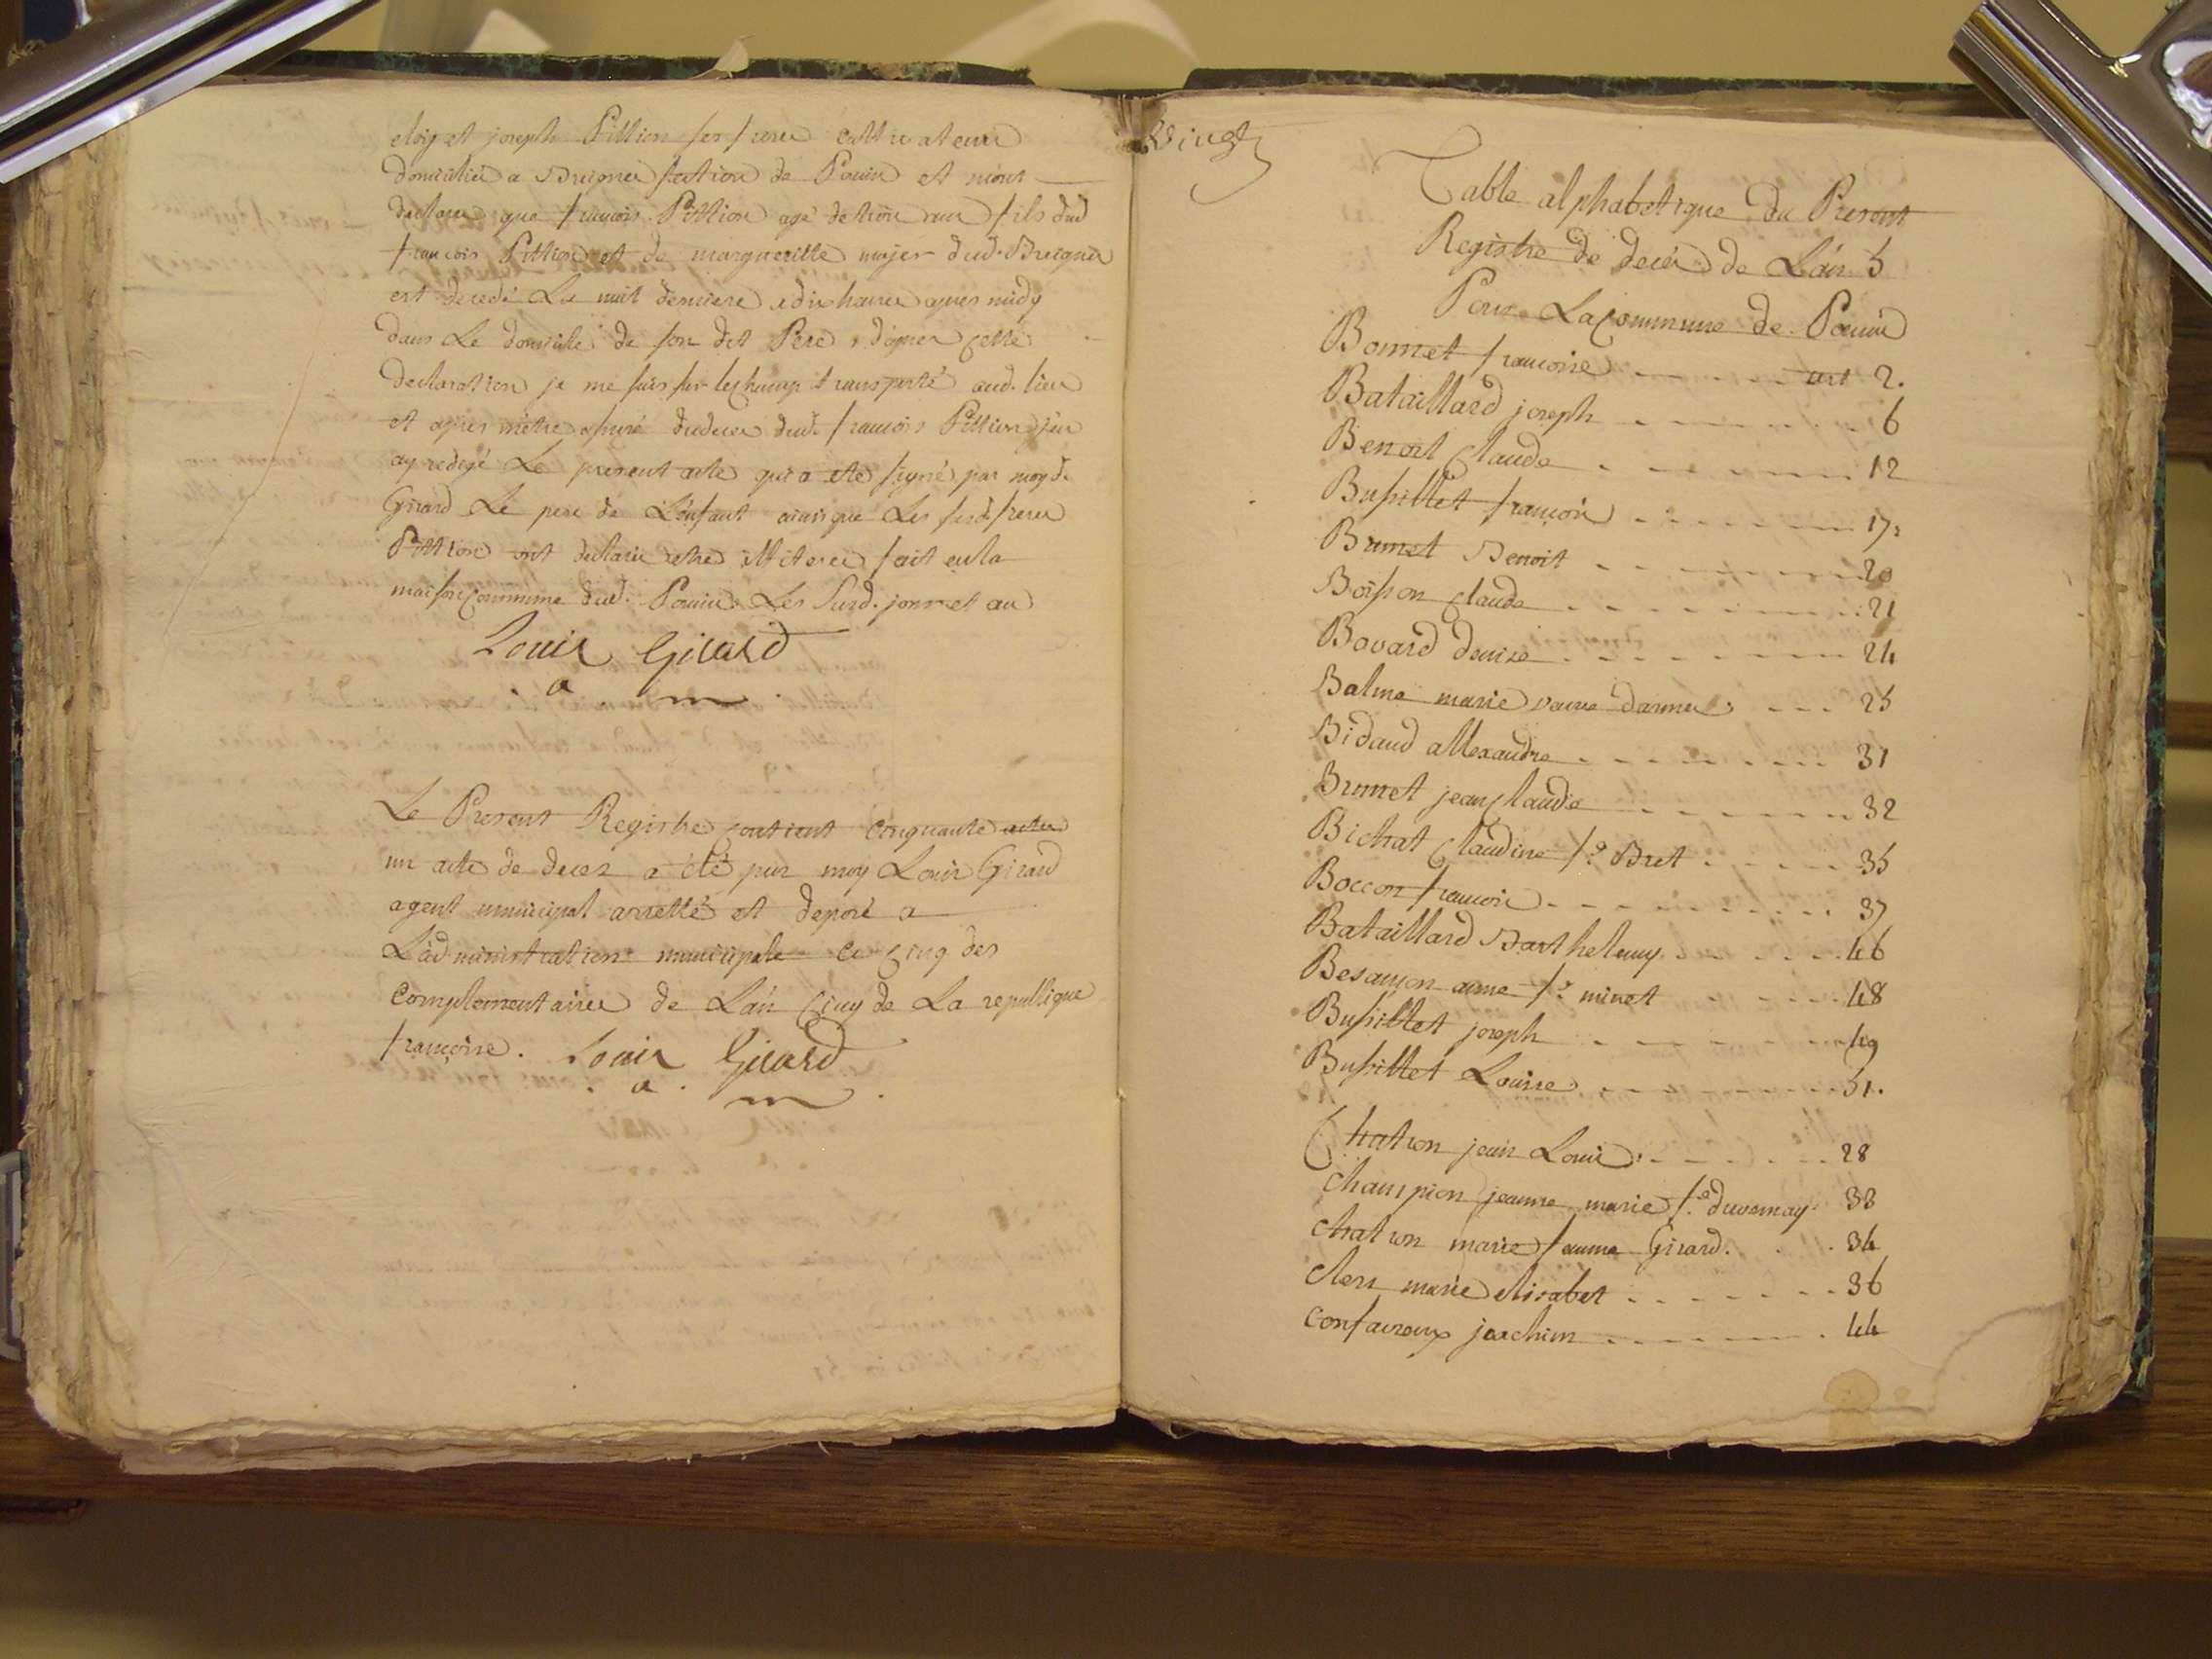 eloy et joseph Pittion ses freres cultivateurs
domiciliés a Breignes section de Pouin et m'ont
declarer que francois Pittion agé de trois ans fils dud
francois Pittion et de margueritte mojer dud. Breignes
est decedé La nuit derniere a dix heures apres midy
dans Le domicile de son dit Pere, d'apres cette
declaration je me suis sur lechamp transporté aud. lieu
et apres m'etre assuré dudeces dud. francois Pittion j'en
ay redigé Le present acte qui a eté signé par moyd.
Girard Le pere de L'enfant ainsi que Les susd. freres
Pittion ont declaré etre illiteres fait en la
maison Commune dud. Pouin Les Susd. jour et an
Louis Girard
a m
Le Present Registre contient cinquante actes
un acte de deces a été par moy Louis Girard
agent municipal arretté et deposé a
L'administration municipale ce cinq des
complementaires de L'an Cinq de La republique
francoise. Louis Girard
a m
Vingt
Table alphabetique du Present
Registre de decés de L'an 5
Pour La Commune de Pouin
Bonnet francoise art 2.
Bataillard joseph 6
Benoit Claude 12
Bussillet francois 17
Brunet Benoit 20
Boisson Claude 21
Bovard denise 24
Balme marie veuve darmes 25
Bidaud allexandre 31
Brunet jean Claude 32
Bichat Claudine fe. Bret 35
Boccon francois 37
Bataillard Barthelemy 46
Besançon anne fe. minet 48
Bussillet joseph 49
Bussillet Louise 51.
Chatron jean Louis 28
Champion jeanne marie fe. duvernay 33
chatron marie femme Girard. 34
clerc marie elisabet 36
confavreux joachim 44